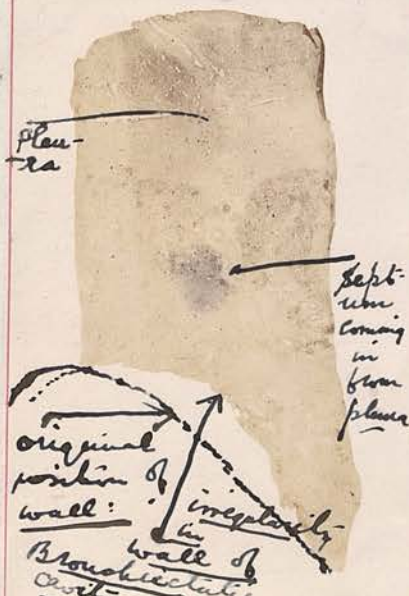 Pleu-
-ra
Sept-
um
coming
in
from
pleura
original
position of
wall:
irregularity
in
wall of
Bronchiectatic
cavit-